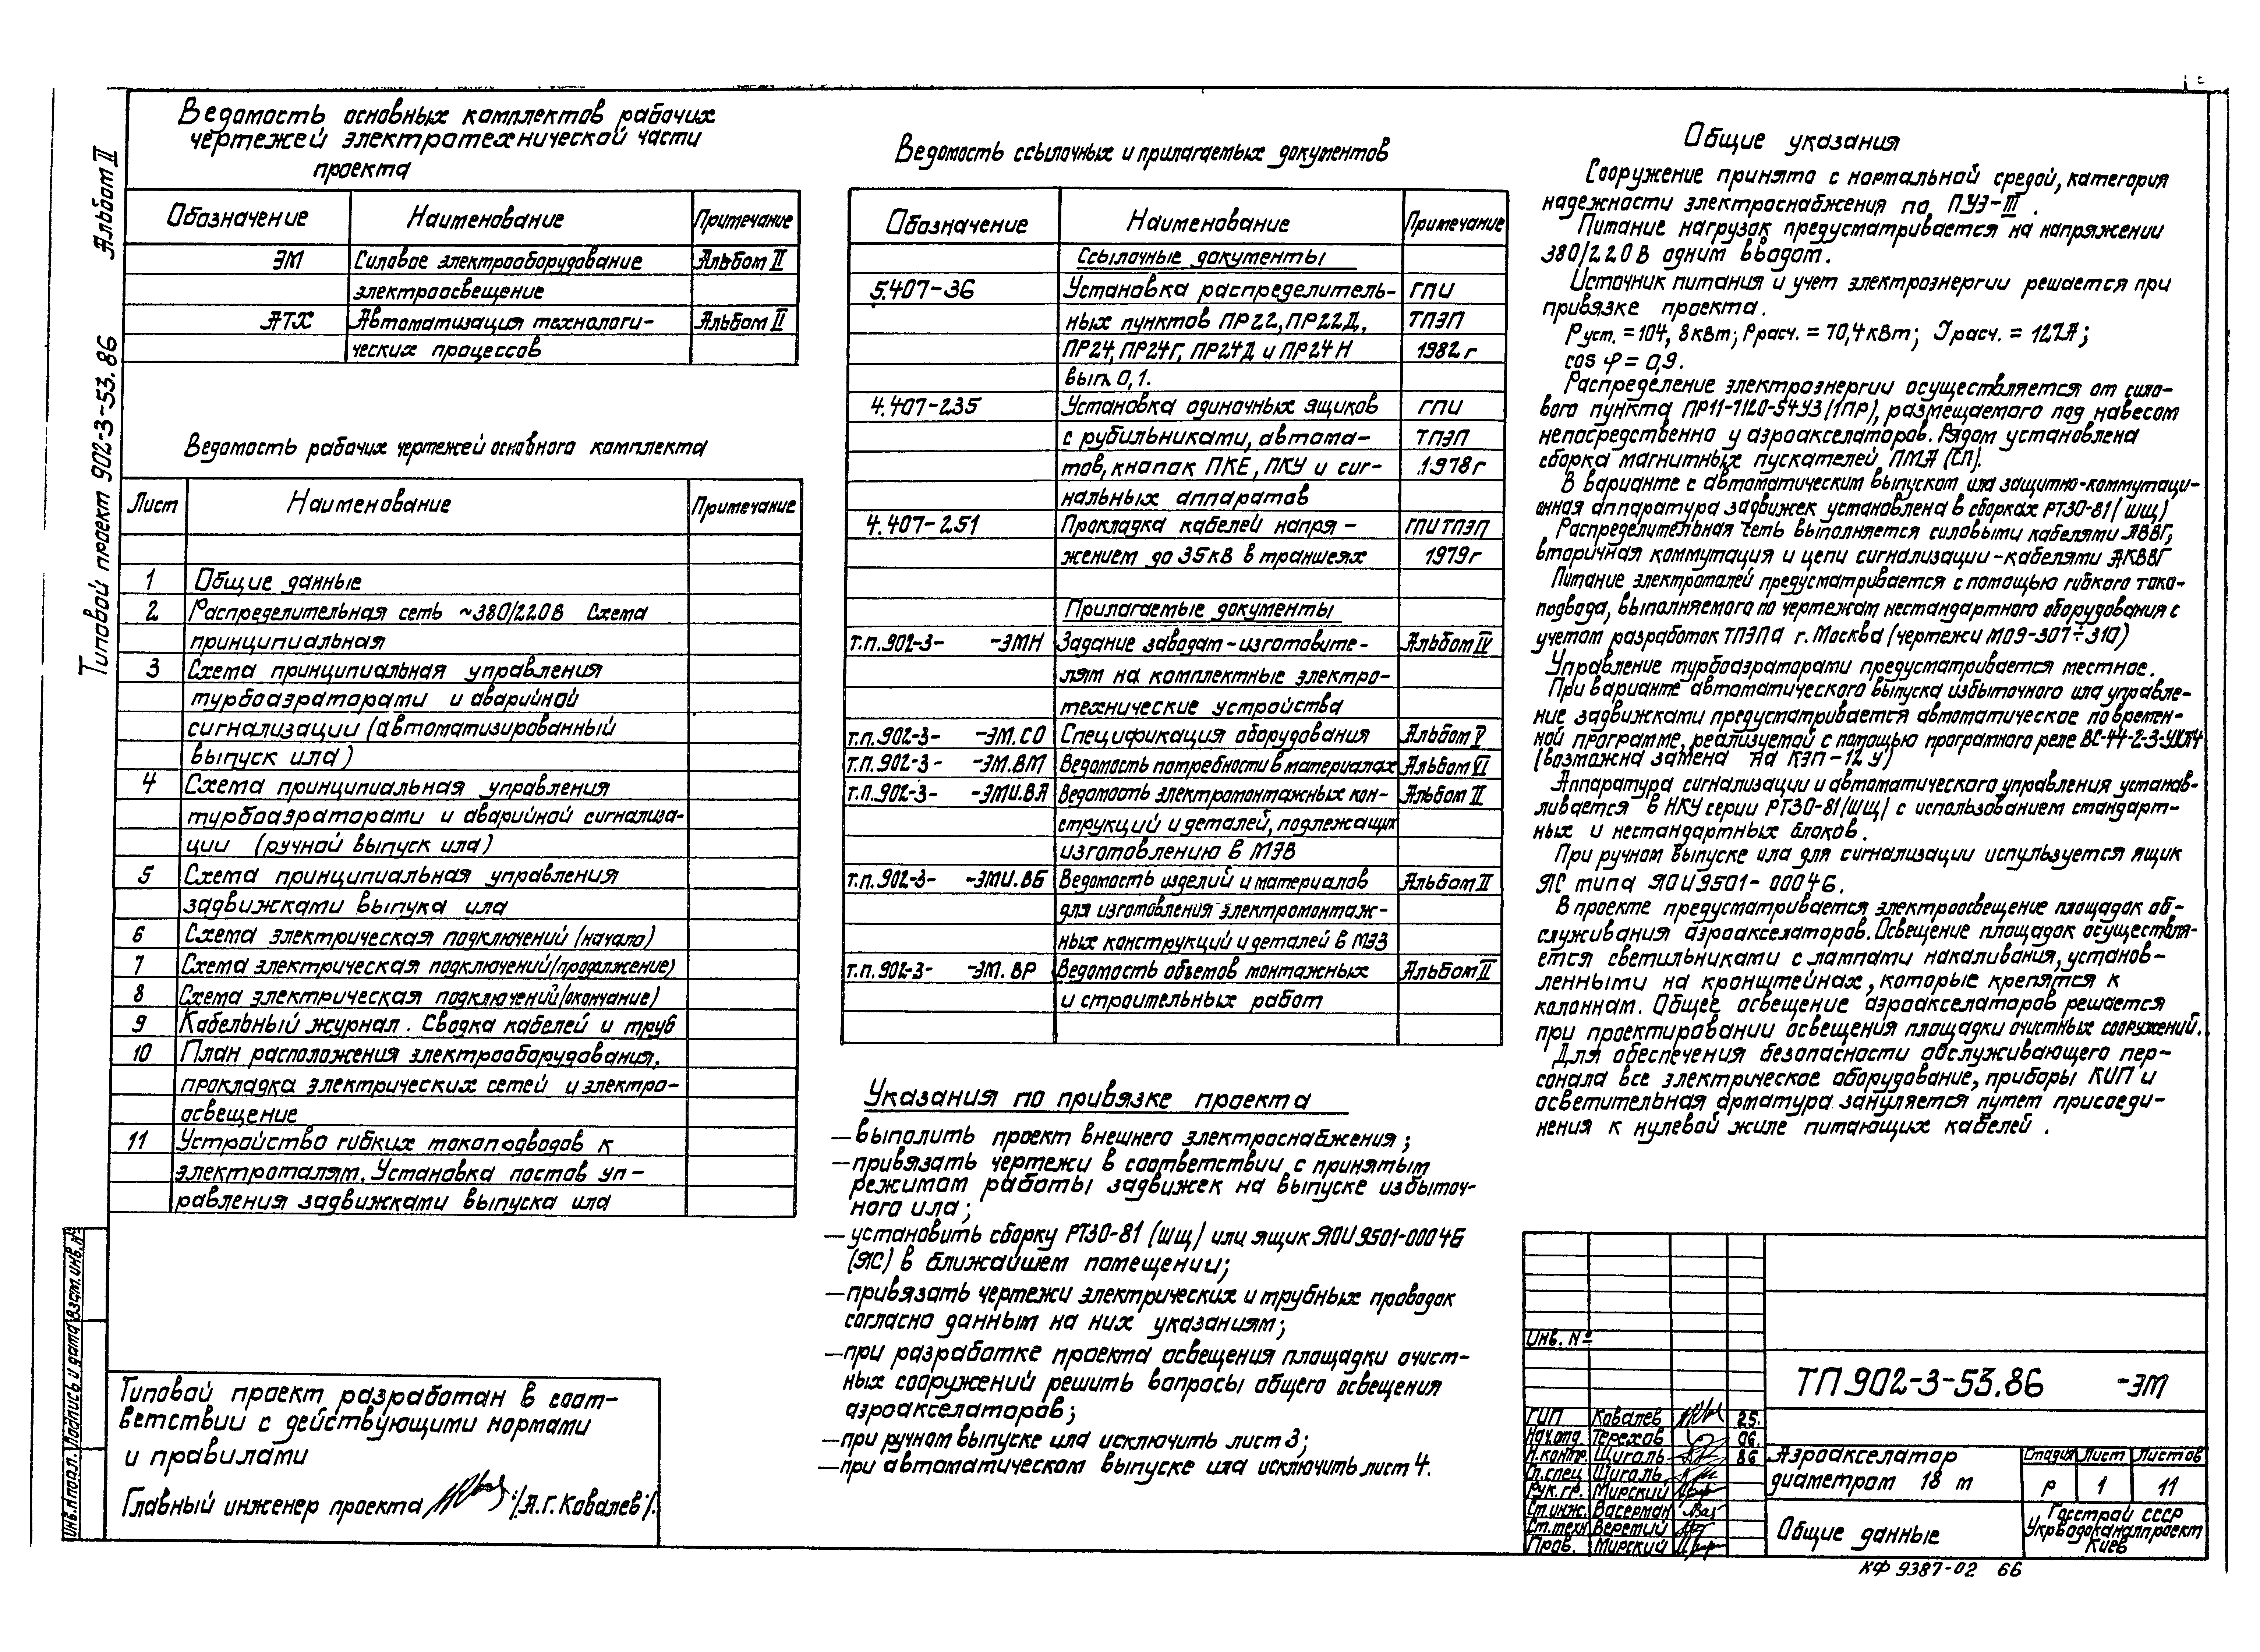 Альбом II
Типовой проект 902-3-53.86
Ведомость основных комплектов рабочих
чертежей электротехнической части
проекта
Обозначение Наименование Примечание
ЭМ Силовое электрооборудование Альбом II
электроосвещение
АТХ Автоматизация технологи- Альбом II
ческих процессов
Ведомость рабочих чертежей основного комплекта
Лист Наименование Примечание
1 Общие данные
2 Распределительная сеть ~380/220В Схема
принципиальная
3 Схема принципиальная управления
турбоаэраторами и аварийной
сигнализации (автоматизированный
выпуск ила)
4 Схема принципиальная управления
турбоаэраторами и аварийной сигнализа-
ции (ручной выпуск ила)
5 Схема принципиальная управления
задвижками выпука ила
6 Схема электрическая подключений (начало)
7 Схема электрическая подключений (продолжение)
8 Схема электрическая подключений (окончание)
9 Кабельный журнал. Сводка кабелей и труб
10 План расположения электрооборудования,
прокладка электрических сетей и электро-
освещение
11 Устройство гибких токоподводов к
электроталям. Установка постов уп-
равления задвижками выпуска ила
Типовой проект разработан в соот-
ветствии с действующими нормами
и правилами
Главный инженер проекта /А.Г. Ковалев/.
Инв. № подл. Подпись и дата Взам. инв. №
Ведомость ссылочных и прилагаемых документов
Обозначение Наименование Примечание
Ссылочные документы
5.407-36 Установка распределитель- ГПИ
ных пунктов ПР22, ПР22Д, ТПЭП
ПР24, ПР24Г, ПР24Д и ПР24Н 1982г
вып. 0,1.
4.407-235 Установка одиночных ящиков ГПИ
с рубильниками, автома- ТПЭП
тов, кнопок ПКЕ, ПКУ и сиг- 1978г
нальных аппаратов
4.407-251 Прокладка кабелей напря- ГПИ ТПЭП
жением до 35кВ в траншеях 1979г
Прилагаемые документы
т.п. 902-3- -ЭМН Задание заводам-изготовите- Альбом IV
лям на комплектные электро-
технические устройства
т.п. 902-3- -ЭМ.СО Спецификация оборудования Альбом V
т.п. 902-3- -ЭМ.ВМ Ведомость потребности в материалах Альбом VI
т.п. 902-3- -ЭМИ.ВА Ведомость электромонтажных кон- Альбом II
струкций и деталей, подлежащих
изготовлению в МЭЗ
т.п. 902-3- -ЭМИ.ВБ Ведомость изделий и материалов Альбом II
для изготовления электромонтаж-
ных конструкций и деталей в МЭЗ
т.п. 902-3- -ЭМ. ВР Ведомость объемов монтажных Альбом II
и строительных работ
Указания по привязке проекта
— выполить проект внешнего электроснабжения;
— привязать чертежи в соответствии с принятым
режимом работы задвижек на выпуске избыточ-
ного ила;
— установить сборку РТ30-81 (ШЩ) или ящик ЯОИ9501-0004Б
(ЯС) в ближайшем помещении;
— привязать чертежи электрических и трубных проводок
согласно данным на них указаниям;
— при разработке проекта освещения площадки очист-
ных сооружений решить вопросы общего освещения
аэроакселаторов;
— при ручном выпуске ила исключить лист 3;
— при автоматическом выпуске ила исключить лист 4.
Общие указания
Сооружение принято с нормальной средой, категория
надежности электроснабжения по ПУЭ-III.
Питание нагрузок предусматривается на напряжении
380/220В одним вводом.
Источник питания и учет электроэнергии решается при
привязке проекта.
Руст. = 104, 8кВт; Ррасч. = 70,4кВт; Iрасч. = 127А;
cos φ = 0,9.
Распределение электроэнергии осуществляется от сило-
вого пункта ПР11-7120-54У3 (1ПР), размещаемого под навесом
непосредственно у аэроакселаторов. Рядом установлена
сборка магнитных пускателей ПМА (СП).
В варианте с автоматическим выпуском ила защитно-коммутаци-
онная аппаратура задвижек установлена в сборках РТ30-81 (ШЩ)
Распределительная сеть выполняется силовыми кабелями АВВГ,
вторичная коммутация и цепи сигнализации-кабелями АКВВГ
Питание электроталей предусматривается с помощью гибкого токо-
подвода, выполняемого по чертежам нестандартного оборудования с
учетом разработок ТПЭПа г. Москва (чертежи М09-307÷310)
Управление турбоаэраторами предусматривается местное.
При варианте автоматического выпуска избыточного ила управле-
ние задвижками предусматривается автоматическое по времен-
ной программе, реализуемой с помощью програмного реле ВС-44-2-3-УХЛ4
(возможна замена на КЭП-12У)
Аппаратура сигнализации и автоматического управления устанав-
ливается в НКУ серии РТ30-81 (ШЩ) с использованием стандарт-
ных и нестандартных блоков.
При ручном выпуске ила для сигнализации испульзуется ящик
ЯС типа ЯОИ9501-0004Б.
В проекте предусматривается электроосвещение площадок об-
служивания аэроакселаторов. Освещение площадок осуществля-
ется светильниками с лампами накаливания, установ-
ленными на кронштейнах, которые крепятся к
колоннам. Общее освещение аэроакселаторов решается
при проектировании освещения площадки очистных сооружений.
Для обеспечения безопасности обслуживающего пер-
сонала все электрическое оборудование, приборы КИП и
осветительная арматура зануляется путем присоеди-
нения к нулевой жиле питающих кабелей.
Инв. №
ТП 902-3-53.86 -ЭМ
ГИП Ковалев 25.
Нач.отд. Терехов 06.
Н.контр. Щиголь 86
Гл.спец Щиголь
Рук. гр. Мирский
Ст.инж. Васерман
Ст.техн Веретий
Пров. Мирский
Аэроакселатор
диаметром 18 м
Стадия Лист Листов
Р 1 11
Общие данные
Госстрой СССР
Укрводоканалпроект
Киев
КФ 9387-02 66